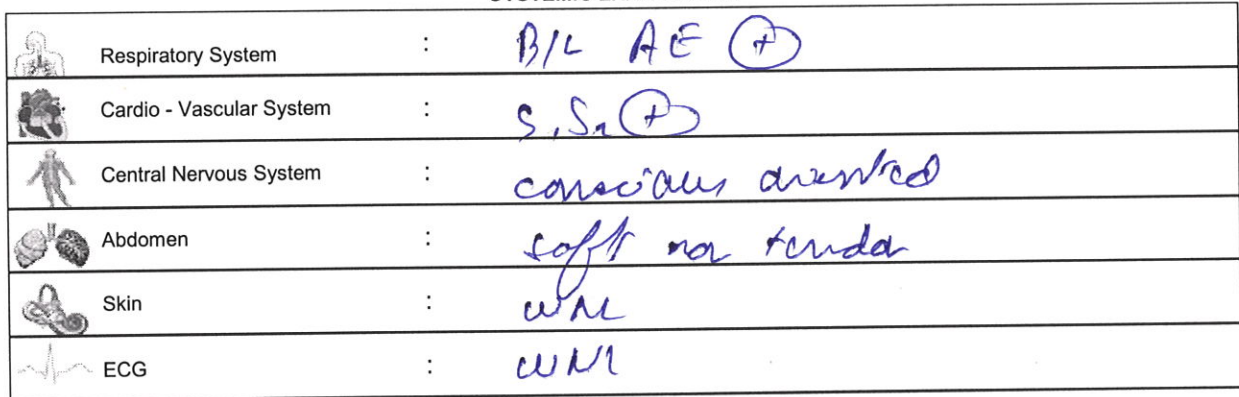 Respiratory System : B/L AE (+)
Cardio - Vascular System : S1S2 (+)
Central Nervous System : conscious oriented
Abdomen : soft non tender
Skin : WNL
ECG : WNL